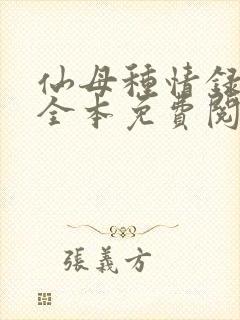 仙母種情録
全本免費閱
張義方